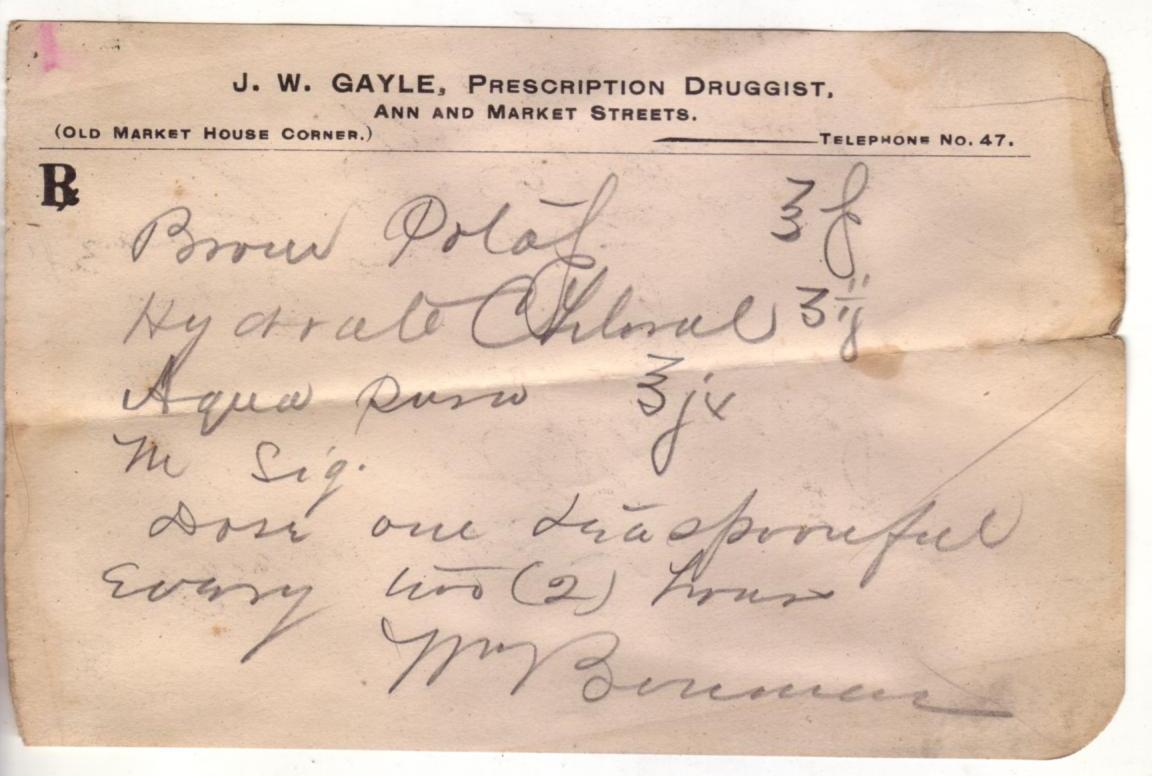 J. W. GAYLE, PRESCRIPTION DRUGGIST,
ANN AND MARKET STREETS.
(OLD MARKET HOUSE CORNER.) TELEPHONE NO. 47.
℞
Brom Potas ʒj
Hydrate Chloral ʒij
Aqua pura ℥iv
M Sig.
Dose one teaspoonful
Every two (2) hours
Wm